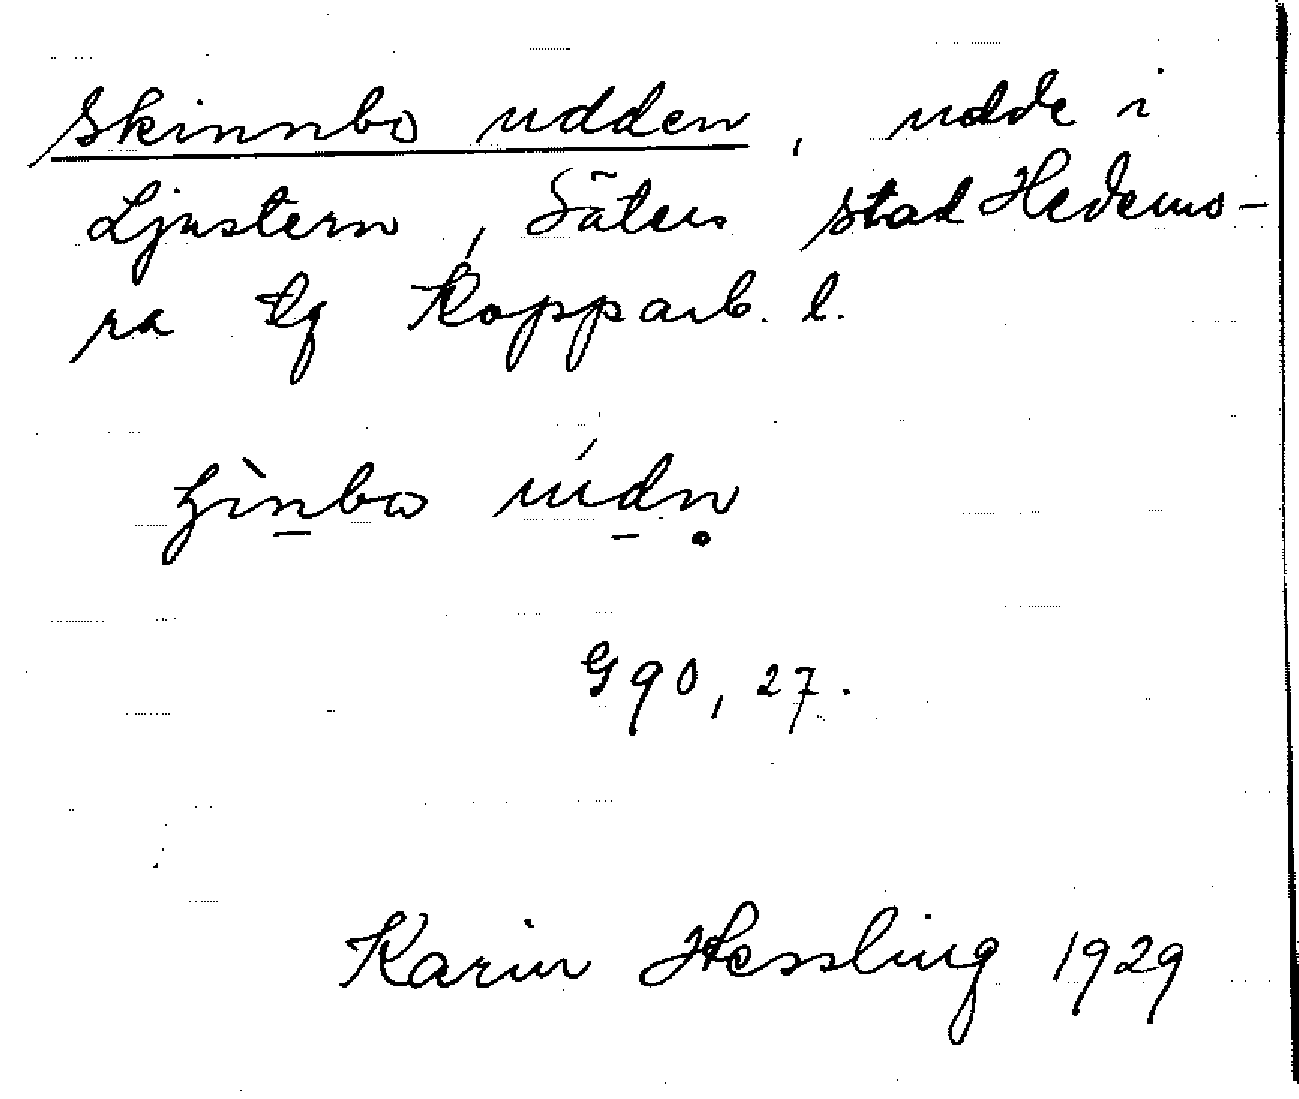 Skinnbo udden, udde i
Ljustern, Säters stad Hedemo-
ra tg Kopparb. l.
G 90, 27.
Karin Hessling 1929